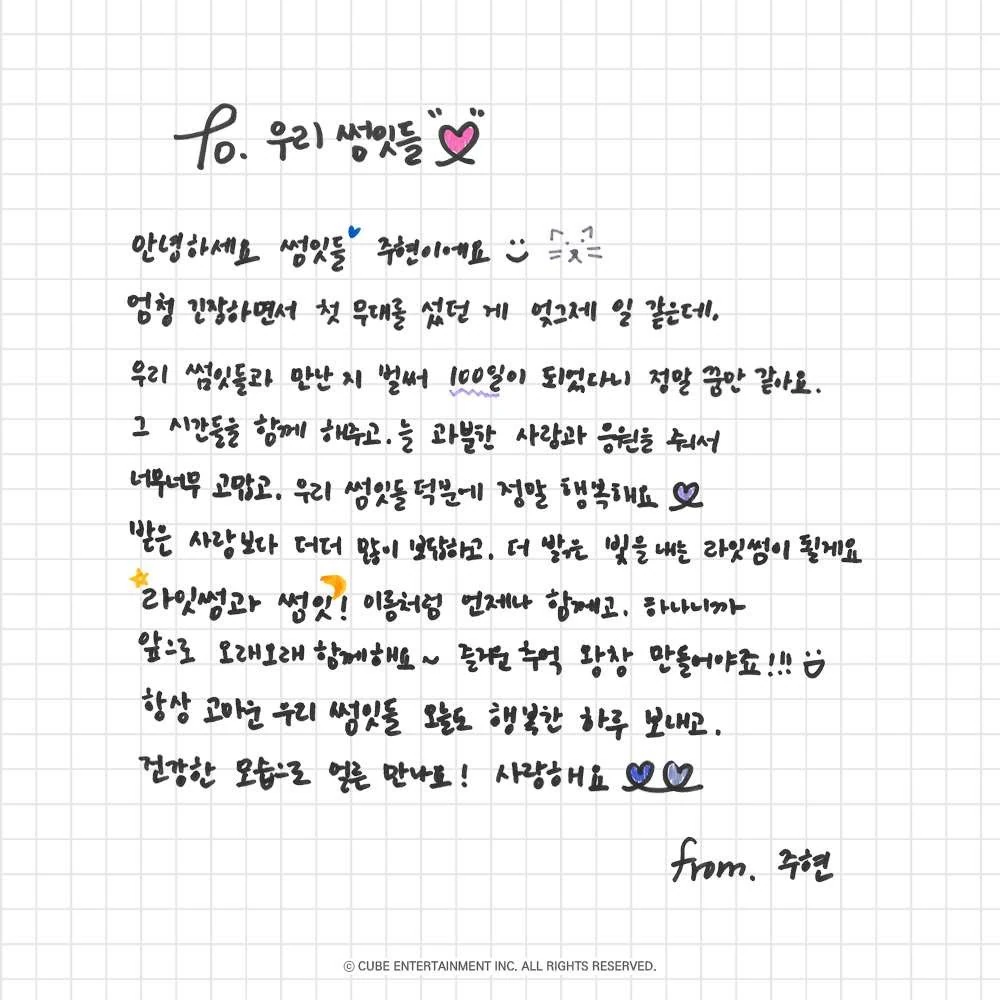 To. 우리 썸잇들
안녕하세요 썸잇들 주현이에요
엄청 긴장하면서 첫 무대를 섰던 게 엊그제 일 같은데,
우리 썸잇들과 만난 지 벌써 100일이 되었다니 정말 꿈만 같아요.
그 시간들을 함께 해주고, 늘 과분한 사랑과 응원을 줘서
너무너무 고맙고, 우리 썸잇들 덕분에 정말 행복해요
받은 사랑보다 더더 많이 보답하고, 더 밝은 빛을 내는 라잇썸이 될게요
라잇썸과 썸잇! 이름처럼 언제나 함께고, 하나니까
앞으로 오래오래 함께해요~ 즐거운 추억 왕창 만들어야죠!!!
항상 고마운 우리 썸잇들 오늘도 행복한 하루 보내고,
건강한 모습으로 얼른 만나요! 사랑해요
from. 주현
© CUBE ENTERTAINMENT INC. ALL RIGHTS RESERVED.